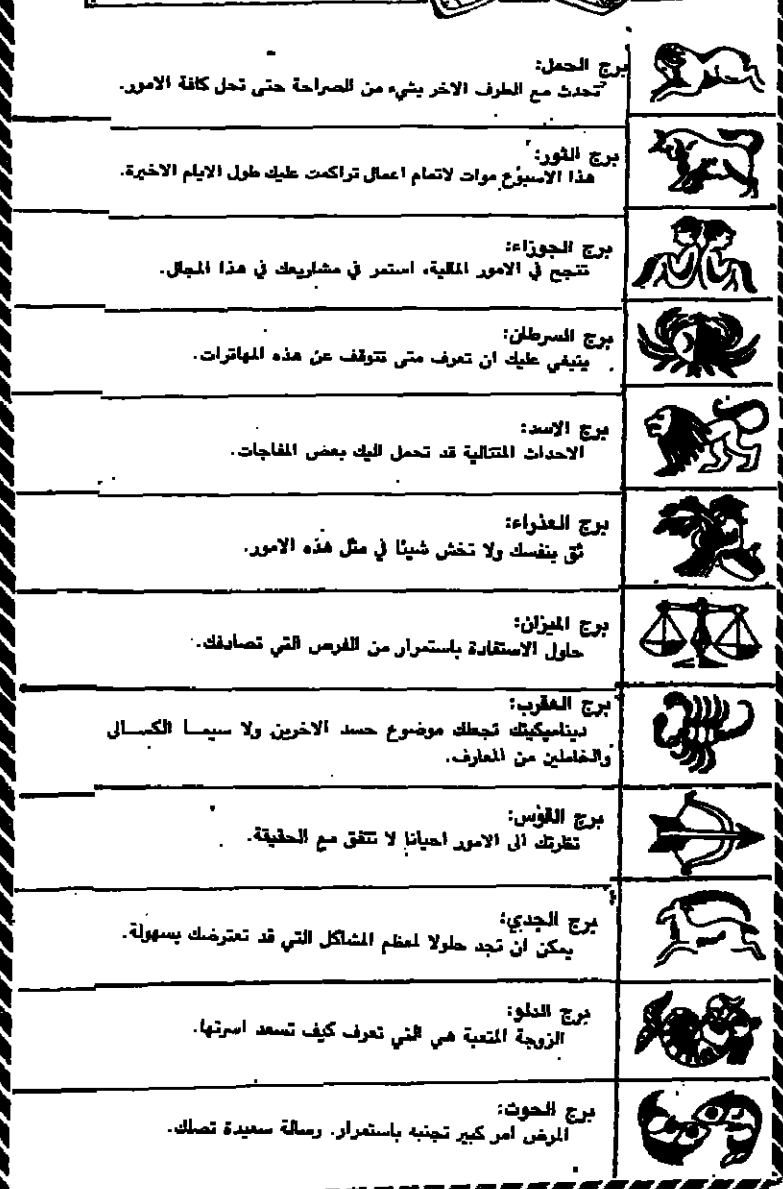 برج الحمل:
تحدث مع الطرف الاخر بشيء من الصراحة حتى تحل كافة الامور.
برج الثور:
هذا الاسبوع موات لاتمام اعمال تراكمت عليك طول الايام الاخيرة.
برج الجوزاء:
تنجح في الامور المالية، استمر في مشاريعك في هذا المجال.
برج السرطان:
ينبغي عليك ان تعرف متى تتوقف عن هذه المهاترات.
برج الاسد:
الاحداث المتتالية قد تحمل اليك بعض المفاجات.
برج العذراء:
ثق بنفسك ولا تخش شيئا في مثل هذه الامور.
برج الميزان:
حاول الاستفادة باستمرار من الفرص التي تصادفك.
برج العقرب:
ديناميكيتك تجعلك موضوع حسد الاخرين ولا سيما الكسالى
والخاملين من المعارف.
برج القوس:
نظرتك الى الامور احيانا لا تتفق مع الحقيقة.
برج الجدي:
يمكن ان تجد حلولا لمعظم المشاكل التي قد تعترضك بسهولة.
برج الدلو:
الزوجة المتعبة هي التي تعرف كيف تسعد اسرتها.
برج الحوت:
المرض امر كبير تجنبه باستمرار. رسالة سعيدة تصلك.